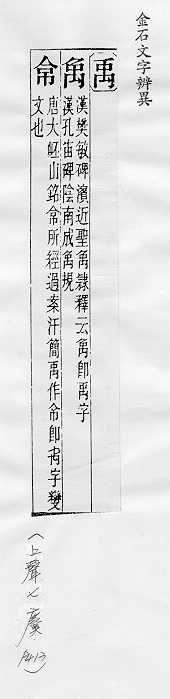 金石文字辨異
禹
𥜼 漢樊敏碑濱近聖禹隸釋云禹卽禹字
漢孔宙碑陰南成禹規
唐大岯山銘帟所經過案汗簡禹作帟卽禹字變
文也
(上聲七麌